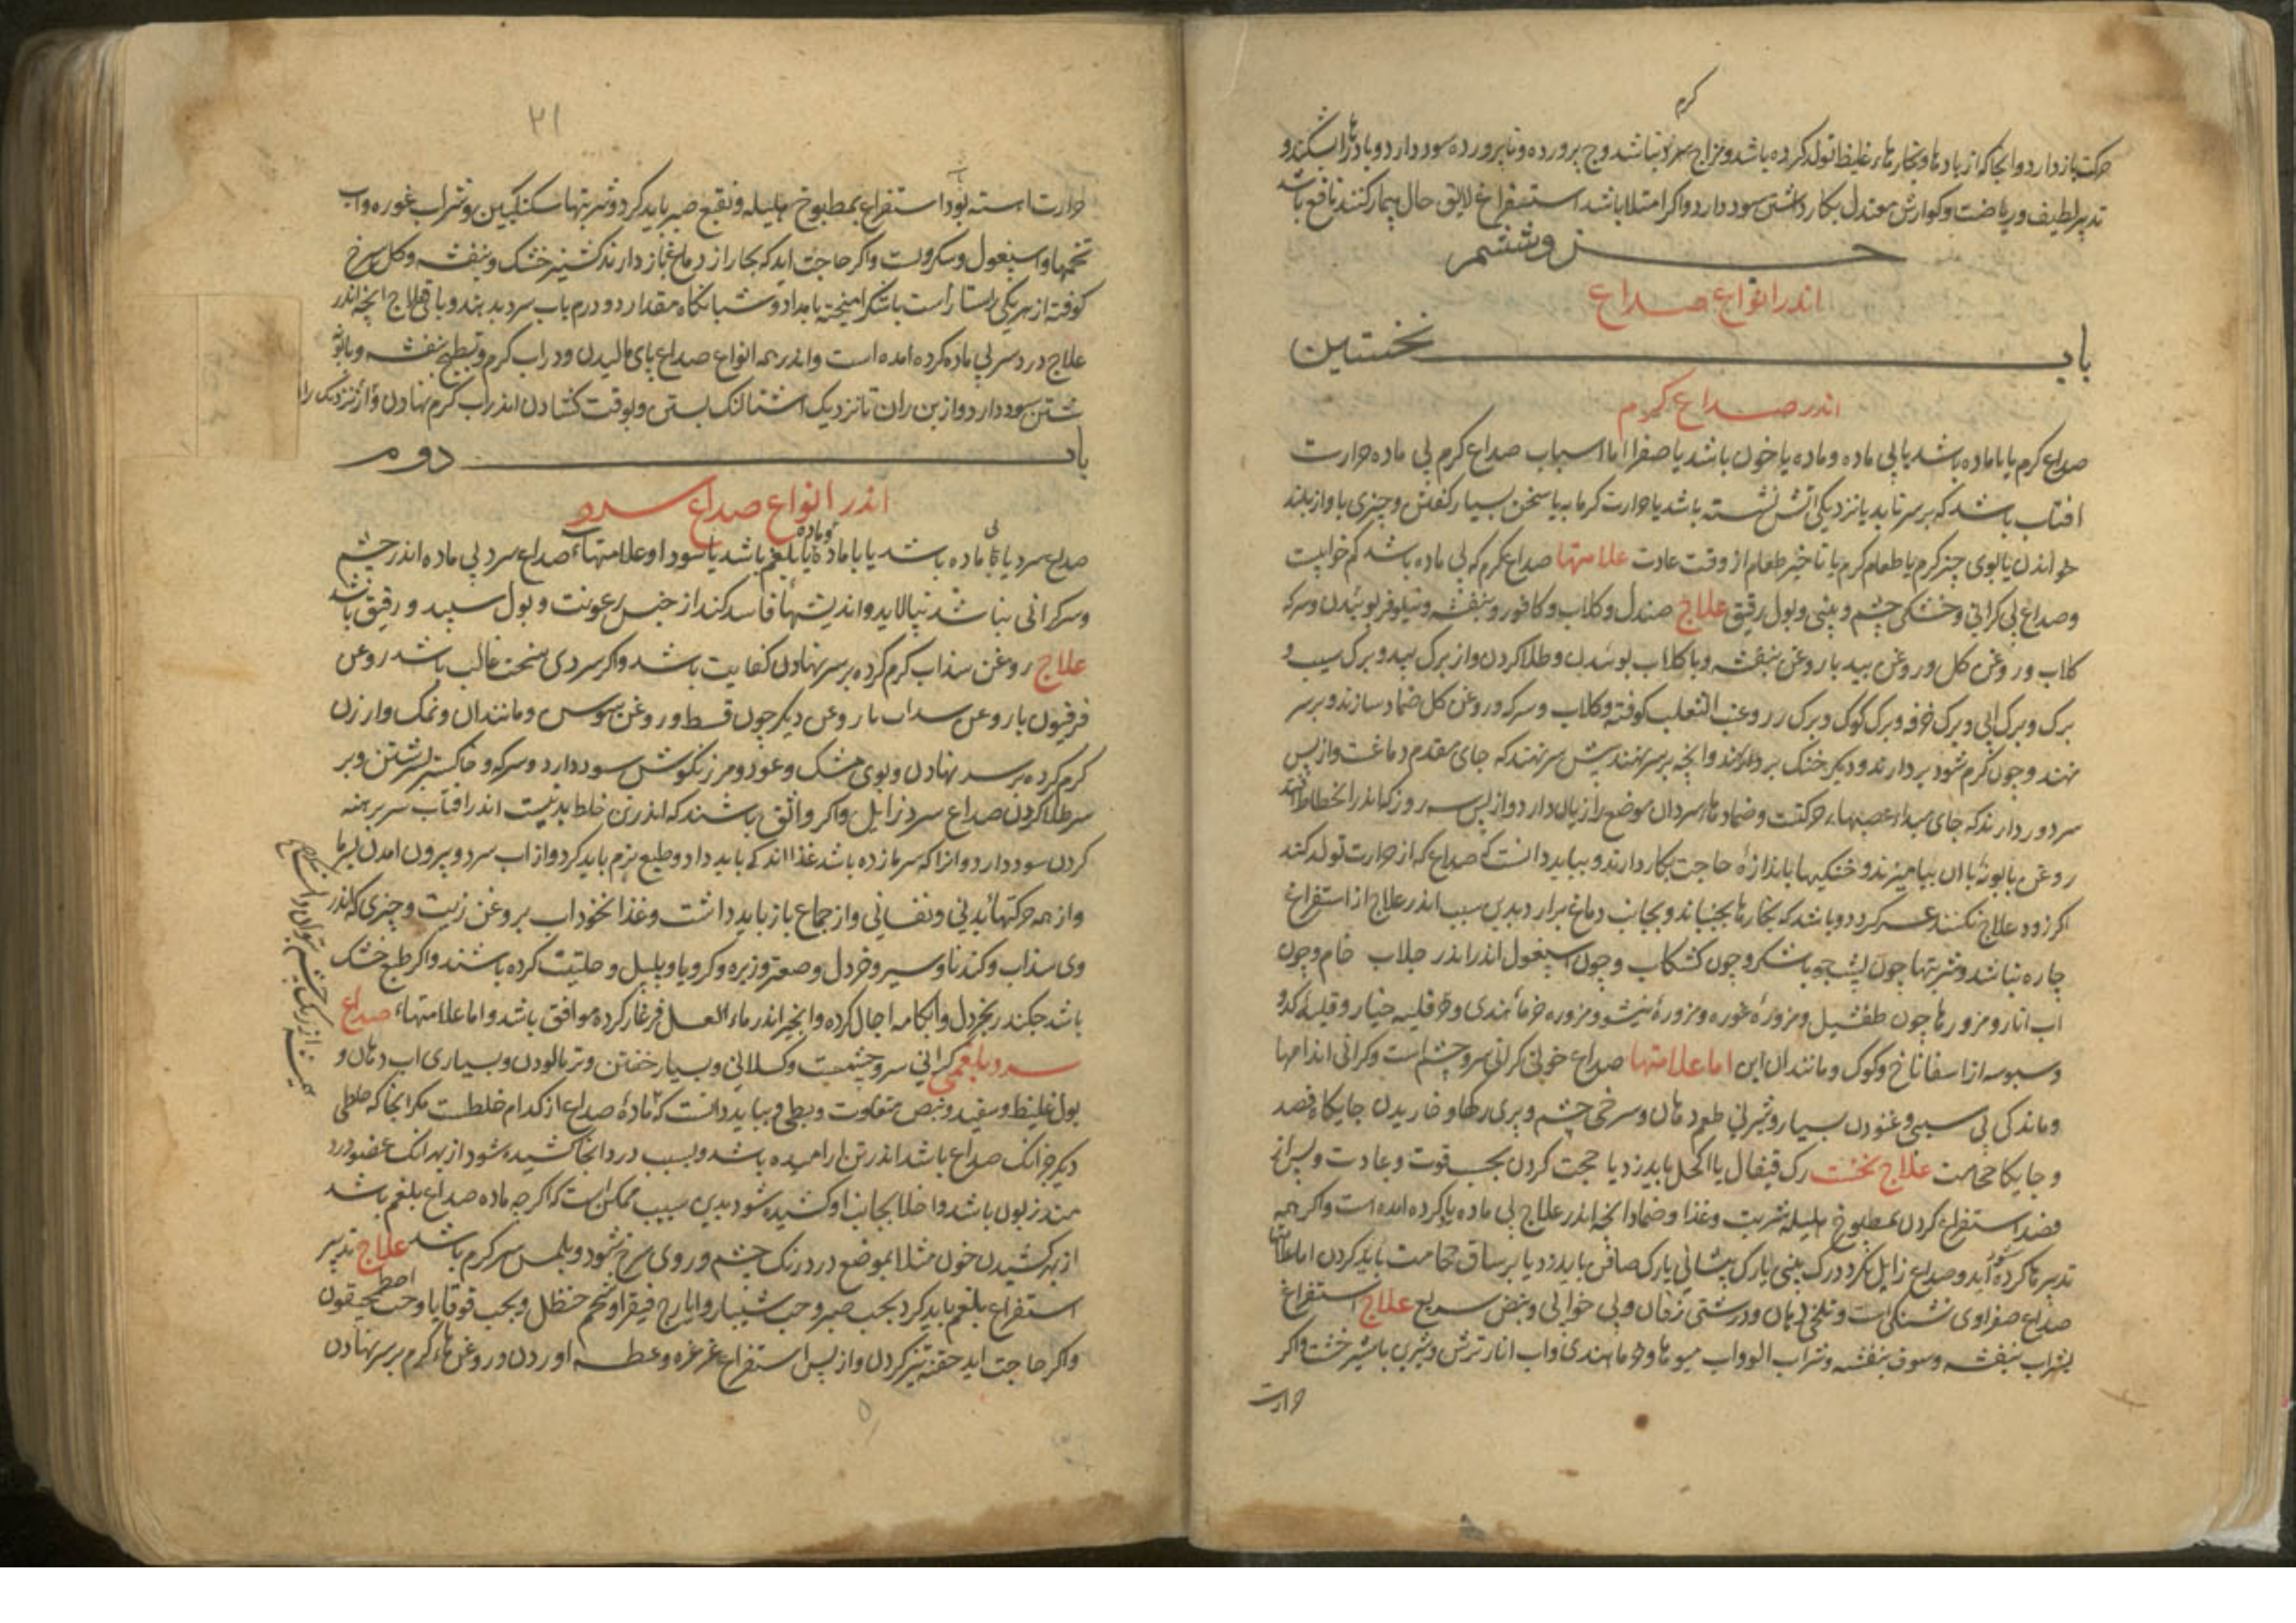 کرم
حرکت باز دارد و انجا که از بادها و بخارهاء غلیظ تولد کرده باشد و مزاج سرد نباشد وج پرورده و ناپرورده سود دارد و بادها را بشکند و
تدبیر لطیف و ریاضت و کوارش معتدل بکار داشتن سود دارد و اکر امتلا باشد استفراغ لایق حال بیمار کنند نافع باشد
جزو ششم
اندر انواع صداع
باب نخستین
اندر صداع کرم
صداع کرم یا با ماده باشد یا بی ماده و ماده یا خون باشد یا صفرا اما اسباب صداع کرم بی ماده حرارت
افتاب باشد که بر سر تابد یا نزدیکی اتش نشسته باشد یا حرارت کرمابه یا سخن بسیار کفتن و چیزی باواز بلند
خواندن یا بوی چیز کرم یا طعام کرم یا تاخیر طعام از وقت عادت علامتها صداع کرم که بی ماده باشد کم خوابیست
و صداع بی کرانی و خشکی چشم و بینی و بول رقیق علاج صندل و کلاب و کافور و بنفشه و نیلوفر بوئیدن و سرکه
کلاب و روغن کل و روغن بید یا روغن بنفشه و با کلاب بوئیدن و طلا کردن و از برک بید و برک سیب و
برک و برک ابی و برک خرفه و برک کوک و برک رز و عنب الثعلب کوفته و کلاب و سرکه و روغن کل ضماد سازند و بر سر
نهند و چون کرم شود بردارند و دیکر خنک بر نهند و انچه بر سر نهند پیش سر نهند که جای مقدم دماغست و از پس
سر دور دارند که جای مبداء عصبهاء حرکتست و ضمادهاء سرد ان موضع را زیان دارد و از پس سه روز که اندر انحطاط افتد
روغن بابونه با ان بیامیزند و خنکیها باندازه حاجت بکار دارند و بباید دانست که صداع که از حرارت تولد کند
اکر زود علاج نکنند عسر کردد و باشد که بخارها بجنباند و بجانب دماغ برارد بدین سبب اندر علاج از استفراغ
چاره نباشد و شربتها چون پست جو با شکر و چون کشکاب و چون اسپغول اندر جلاب خام و چون
اب انار و مزورها چون طفشیل و مزوره غوره و مزوره نیشو و مزوره خرماء هندی و قلیه خیار و قلیه کدو
و سبوسه از اسفاناخ و کوک و مانند ان این اما علامتها صداع خونی کرانی سر و چشم است و کرانی اندامها
و ماندکی بی سببی و غنودن بسیار و شیرینی طعم دهان و سرخی چشم و پری رکها و خاریدن جایکاه فصد
و جایکا حجامت علاج نخست رک قیفال یا اکحل باید زد یا حجامت کردن بحسب قوت و عادت و پس از
فصد استفراغ کردن بمطبوخ هلیله شربت و غذا و ضماد انچه اندر علاج بی ماده یاد کرده امده است و اکر همه
تدبیرها کرده شود و صداع زایل نکردد رک بینی یا رک پیشانی یا رک صافن باید زد یا بر ساق حجامت باید کردن اما علامتهاء
صداع صفراوی تشنکی است و تلخی دهان و درشتی زفان و بی خوابی و نبض سریع علاج استفراغ
بشراب بنفشه و سفوف بنفشه و شراب الو و اب میوها و خرماء هندی و اب انار ترش و شیرین با شیر خشت و اکر
حرارت
۲۱
حرارت اهسته بود استفراغ بمطبوخ هلیله و نقیع صبر باید کرد و شربتها سکنکبین و شراب غوره و اب
تخمها و اسپغول و سکر و اکر حاجت اید که بخار از دماغ باز دارند کشنیز خشک و بنفشه و کل سرخ
کوفته از هر یکی راستاراست با شکر امیخته بامداد و شبانکاه مقدار دو درم باب سرد بدهند و باقی علاج انچه اندر
علاج درد سر بی ماده کرده امده است و اندر همه انواع صداع پای مالیدن و در اب کرم و طبیخ بنفشه و بابونه
شستن سود دارد و از بن ران تا نزدیک اشتالنک بستن و بوقت کشادن اندر اب کرم نهادن و از نزدیک ران
باب دوم
اندر انواع صداع سرد
صداع سرد یا بی ماده باشد یا با ماده و ماده یا بلغم باشد یا سودا و علامتهاء صداع سرد بی ماده اندر چشم
و سر کرانی نباشد نپالاید و اندیشهاء فاسد کند از جنس رعونت و بول سپید و رقیق باشد
علاج روغن سذاب کرم کرده بر سر نهادن کفایت باشد و اکر سردی سخت غالب باشد روغن
فرفیون با روغن سداب یا روغن دیکر چون قسط و روغن سوسن و مانند ان و نمک و ارزن
کرم کرده بر سر نهادن و بوی مشک و عود و مرزنکوش سود دارد و سرکه و خاکستر سرشتن و بر
سر طلا کردن صداع سرد زایل و اکر واثق باشند که اندر تن خلط بد نیست اندر افتاب سر برهنه
کردن سود دارد و انرا که سرما زده باشد غذا اندک باید داد و طبع نرم باید کرد و از اب سرد و بیرون امدن بسرما
و از همه حرکتهاء بدنی و نفسانی و از جماع باز باید داشت و غذا نخوداب بروغن زیت و چیزی که اندر
وی سذاب و کندنا و سیر و خردل و صعتر و زیره و کرویا و پلپل و حلتیت کرده باشند و اکر طبع خشک
باشد چکندر بخردل و ابکامه اچار کرده و انجیر اندر ماء العسل فرغار کرده موافق باشد و اما علامتهاء صداع
سرد بلغمی کرانی سر و چشمست و کسلانی و بسیار خفتن و تر بالودن و بسیاری اب دهان و
بول غلیظ و سفید و نبض متفاوت و بطی و بباید دانست که ماده صداع از کدام خلطست مکر انجا که خلطی
دیکر جز انک صداع باشد اندر تن ارامیده باشد و بسبب درد انجا کشیده شود از بهر انک عضو درد
مند زبون باشد و اخلاط بجانب او کشیده شود بدین سبب ممکن است که اکر چه ماده صداع بلغم باشد
از بهر کشیدن خون مثلا بموضع درد رنک چشم و روی سرخ شود و بلمس سر کرم باشد علاج تدبیر
استفراغ بلغم باید کرد بحب صبر و حب شبیار و ایارج فیقرا و تخم حنظل و بحب قوقایا و حب اصطمحیقون
و اکر حاجت اید حقنه تیز کردن و از پس استفراغ غرغره و عطسه اوردن و روغنهاء کرم بر سر نهادن